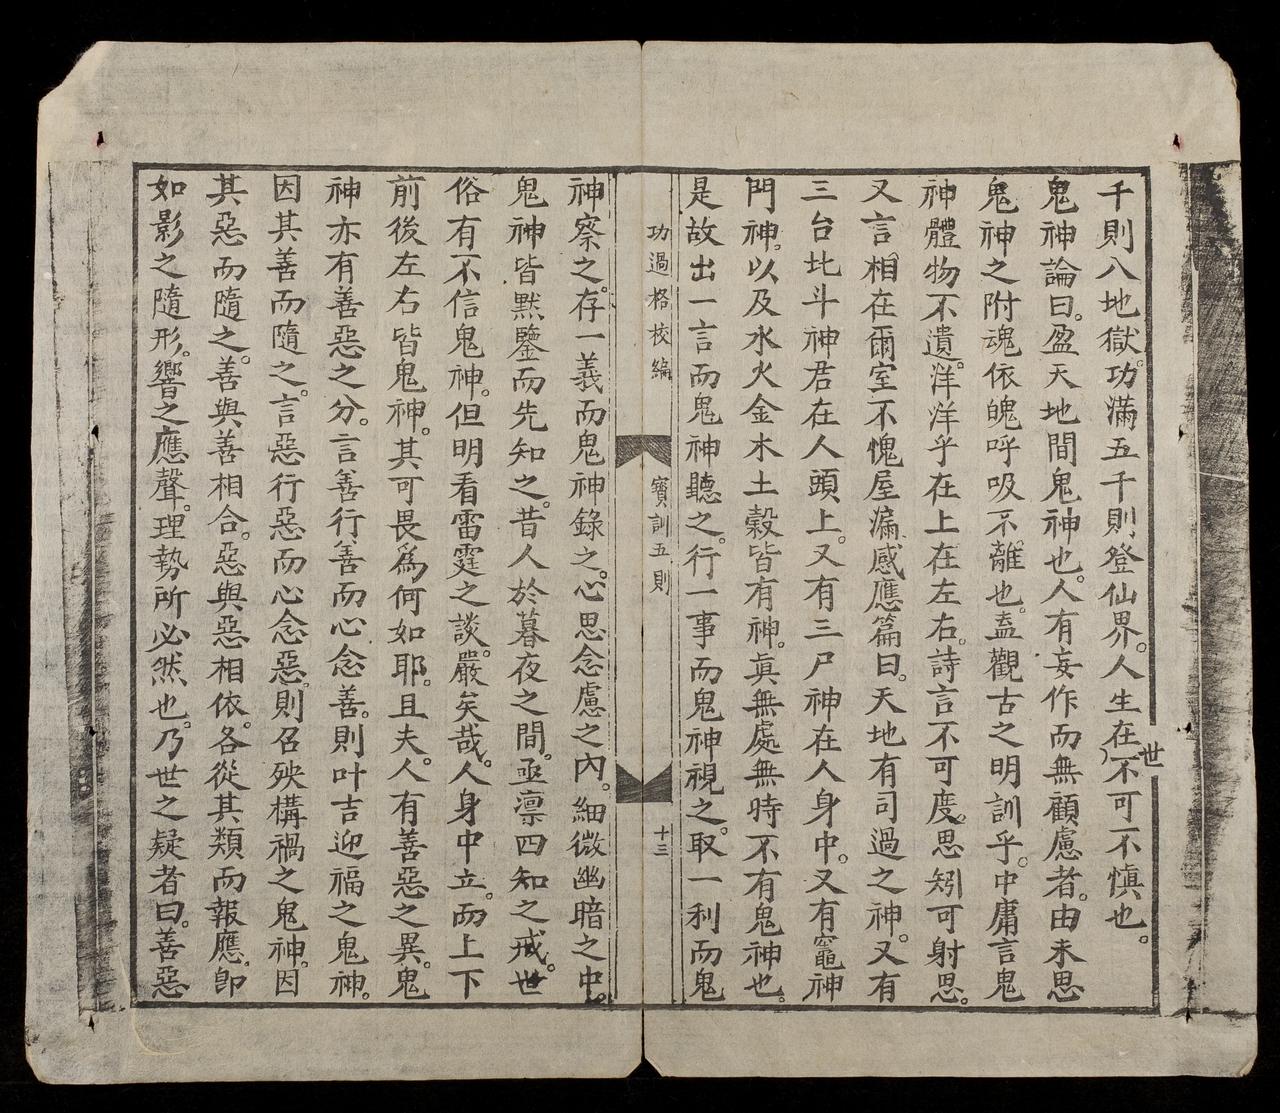 千則八地獄。功滿五千則登仙界。人生在世不可不慎也。
鬼神論曰。盈天地間鬼神也。人有妄作而無顧慮者。由未思
鬼神之附魂依魄呼吸不離也。盍觀古之明訓乎。中庸言鬼
神體物不遺。洋洋乎在上在左右。詩言不可度。思矧可射思。
又言相在爾室不愧屋漏感應篇曰。天地有司過之神。又有
三台北斗神君在人頭上。又有三尸神在人身中。又有竈神
門神。以及水火金木土穀皆有神。眞無處無時不有鬼神也。
是故出一言而鬼神聽之。行一事而鬼神視之。取一利而鬼
功過格校編
寶訓五則
十三
神察之。存一義而鬼神錄之。心思念慮之內。細微幽暗之中。
鬼神皆默鑒而先知之。昔人於暮夜之間。亟凛四知之戒。世
俗有不信鬼神。但明看雷霆之談。嚴矣哉。人身中立。而上下
前後左右皆鬼神。其可畏爲何如耶。且夫人有善惡之異。鬼
神亦有善惡之分。言善行善而心念善。則叶吉迎福之鬼神。
因其善而隨之。言惡行惡而心念惡。則召殃構禍之鬼神。因
其惡而隨之。善與善相合。惡與惡相依。各從其類而報應。卽
如影之隨形。響之應聲。理勢所必然也。乃世之疑者曰。善惡